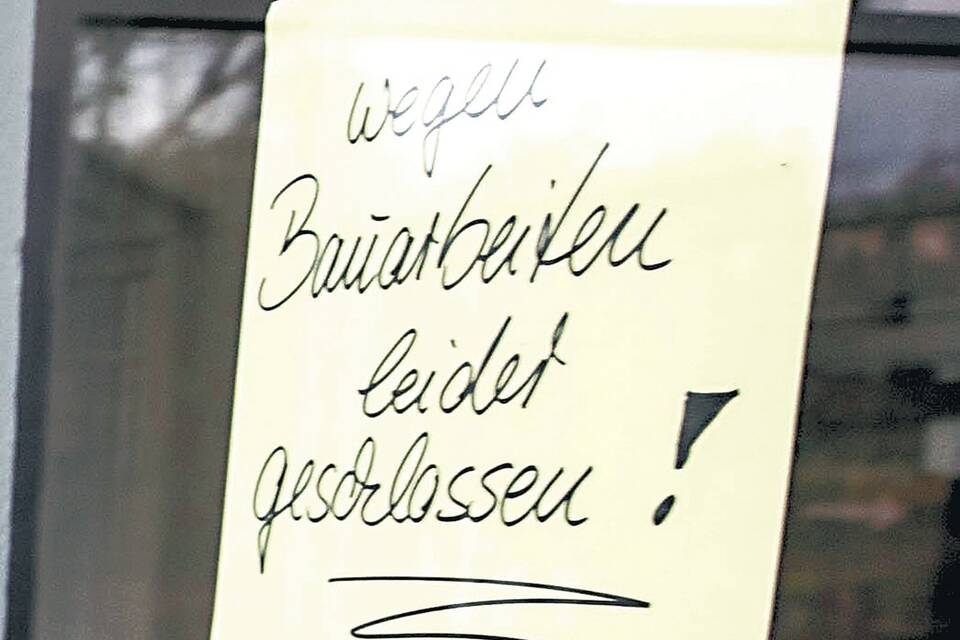 wegen
Bauarbeiten
leider
geschlossen!